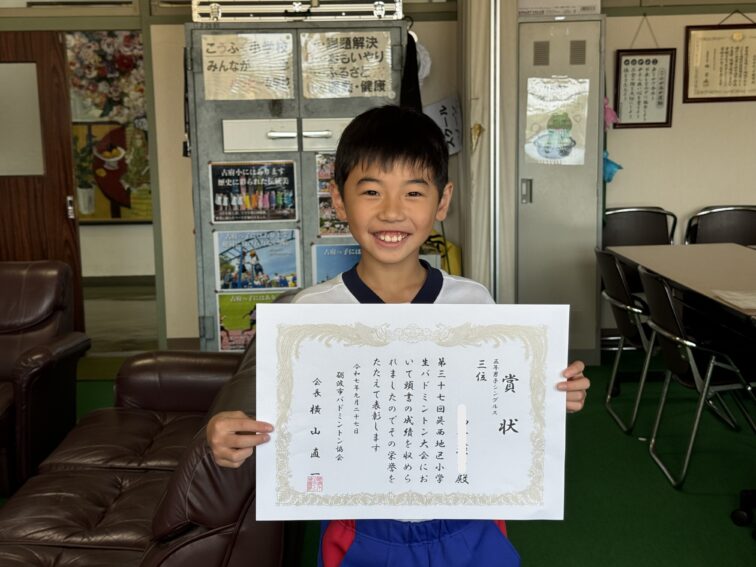 こうふ小学校
みんなが
課題解決
おもいやり
ふるさと
健康
古府小にはあります
歴史に彩られた伝統美
古府っ子には
古府っ子にはあ
賞状
五年男子シングルス
三位
殿
第三十七回呉西地区小学
生バドミントン大会にお
いて頭書の成績を収めら
れましたのでその栄誉を
たたえて表彰します
令和七年九月二十七日
砺波市バドミントン協会
会長 横山直一